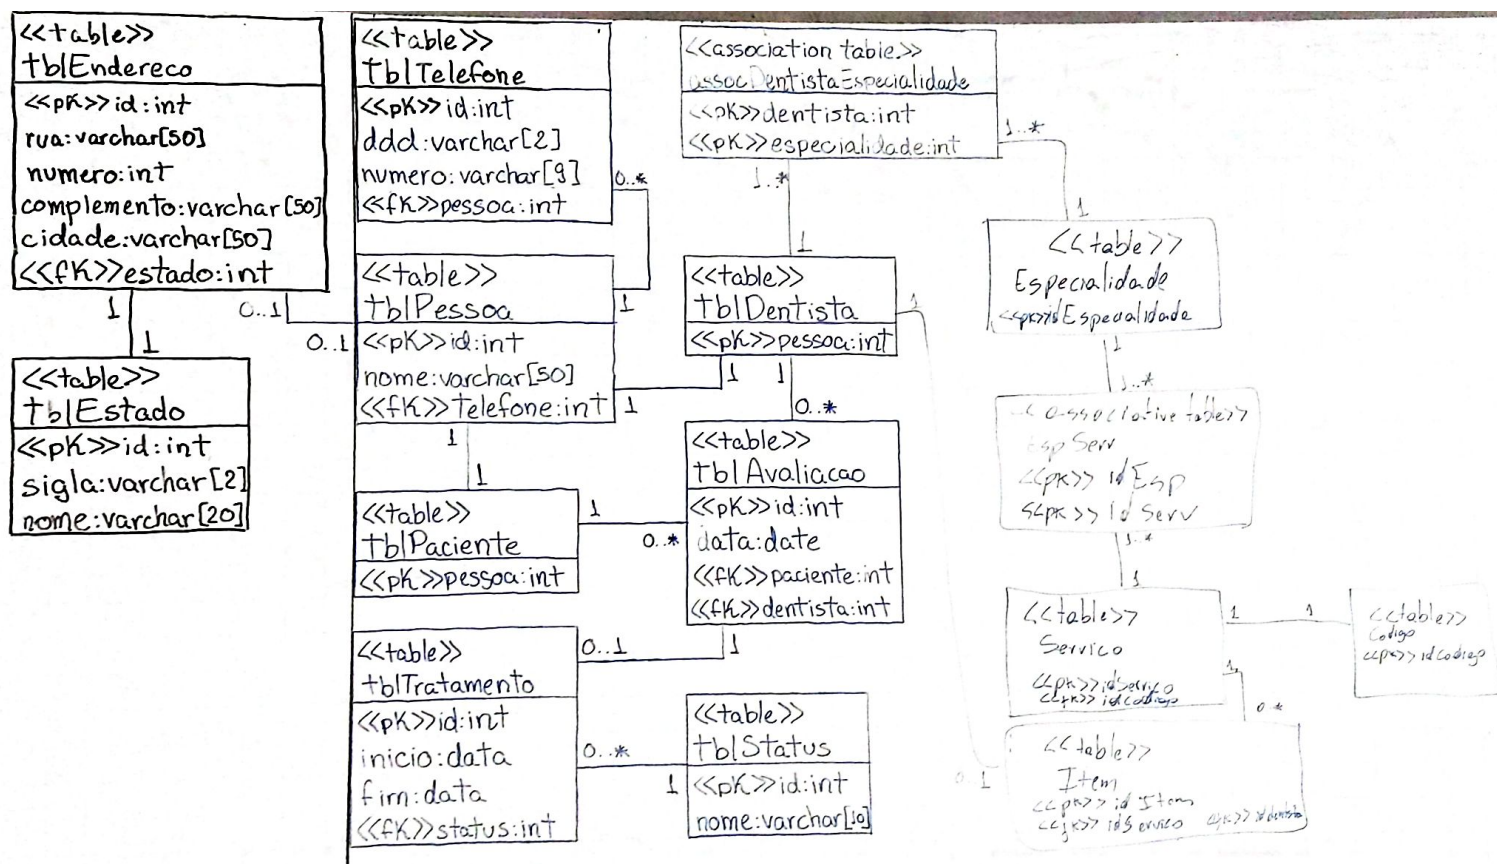 <<table>>
tblEndereco
<<pk>>id:int
rua:varchar[50]
numero:int
complemento:varchar[50]
cidade:varchar[50]
<<fk>>estado:int
1
0..1
1
<<table>>
tblEstado
<<pk>>id:int
sigla:varchar[2]
nome:varchar[20]
<<table>>
tblTelefone
<<pk>>id:int
ddd:varchar[2]
numero:varchar[9]
<<fk>>pessoa:int
0..*
<<table>>
tblPessoa
<<pk>>id:int
nome:varchar[50]
<<fk>>telefone:int
1
0..1
1
1
1
<<table>>
tblPaciente
<<pk>>pessoa:int
1
0..*
<<table>>
tblTratamento
<<pk>>id:int
inicio:data
fim:data
<<fk>>status:int
0..1
1
0..*
1
<<association table>>
assocDentistaEspecialidade
<<pk>>dentista:int
<<pk>>especialidade:int
1..*
1..*
1
1
<<table>>
tblDentista
<<pk>>pessoa:int
1
1
1
0..*
<<table>>
tblAvaliacao
<<pk>>id:int
data:date
<<fk>>paciente:int
<<fk>>dentista:int
<<table>>
tblStatus
<<pk>>id:int
nome:varchar[10]
<<table>>
Especialidade
<<pk>>idEspecialidade
1
1..*
<<associative table>>
EspServ
<<pk>> idEsp
<<pk>> idServ
1..*
1
<<table>>
Servico
<<pk>>idServico
<<fk>>idCodigo
1
1
<<table>>
Codigo
<<pk>>idCodigo
1
0 *
0..1
<<table>>
Item
<<pk>> idItem
<<fk>> idServico <<fk>> iddentista